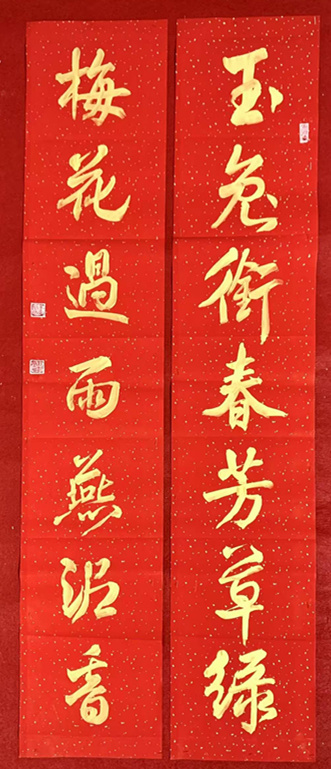 玉兔銜春芳草绿
梅花過雨燕泥香